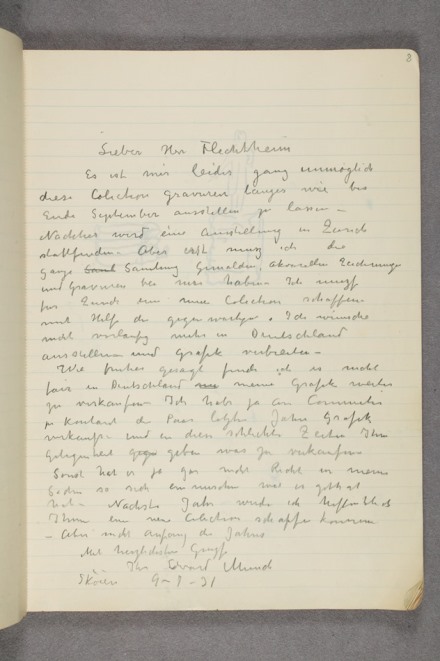 3
Lieber Herr Flechtheim
Es ist mir leider ganz unmöglich
diese Colection gravuren länger wie bis
Ende September ausstellen zu lassen –
Nachher wird eine Ausstellung in Zürich
stattfinden. Aber erst muss ich die
ganze Samlung Gemälden akvareller Zeichnungen
und Gravuren bei mir haben. Ich muss
für Zürich eine neue Colection schaffen
mit Hilfe der gegenwartigen. Ich wünsche
nicht vorläufig mehr in Deutschland
ausstellen und Grafik verbreiten –
Wie früher gesagt finde ich es nicht
fair in Deutschland meine Grafik weiter
zu verkaufen. Ich habe ja an Commeter
ein Paar letzte Jahre Grafik
verkauft und in diese schlechte Zeiten Ihm
gelegenheit geben was zu verkaufen
Sonst hat er ja gar nicht Recht in meine
Sachen so sich ein mischen wie er gethat
hat. Nächste Jahr werde ich hoffentlich
Ihnen eine neue Colection schaffen können
– Aber nicht anfang des Jahres
Mit herzlichsten Gruss
Ihr Edvard Munch
Sköien 9–8–31